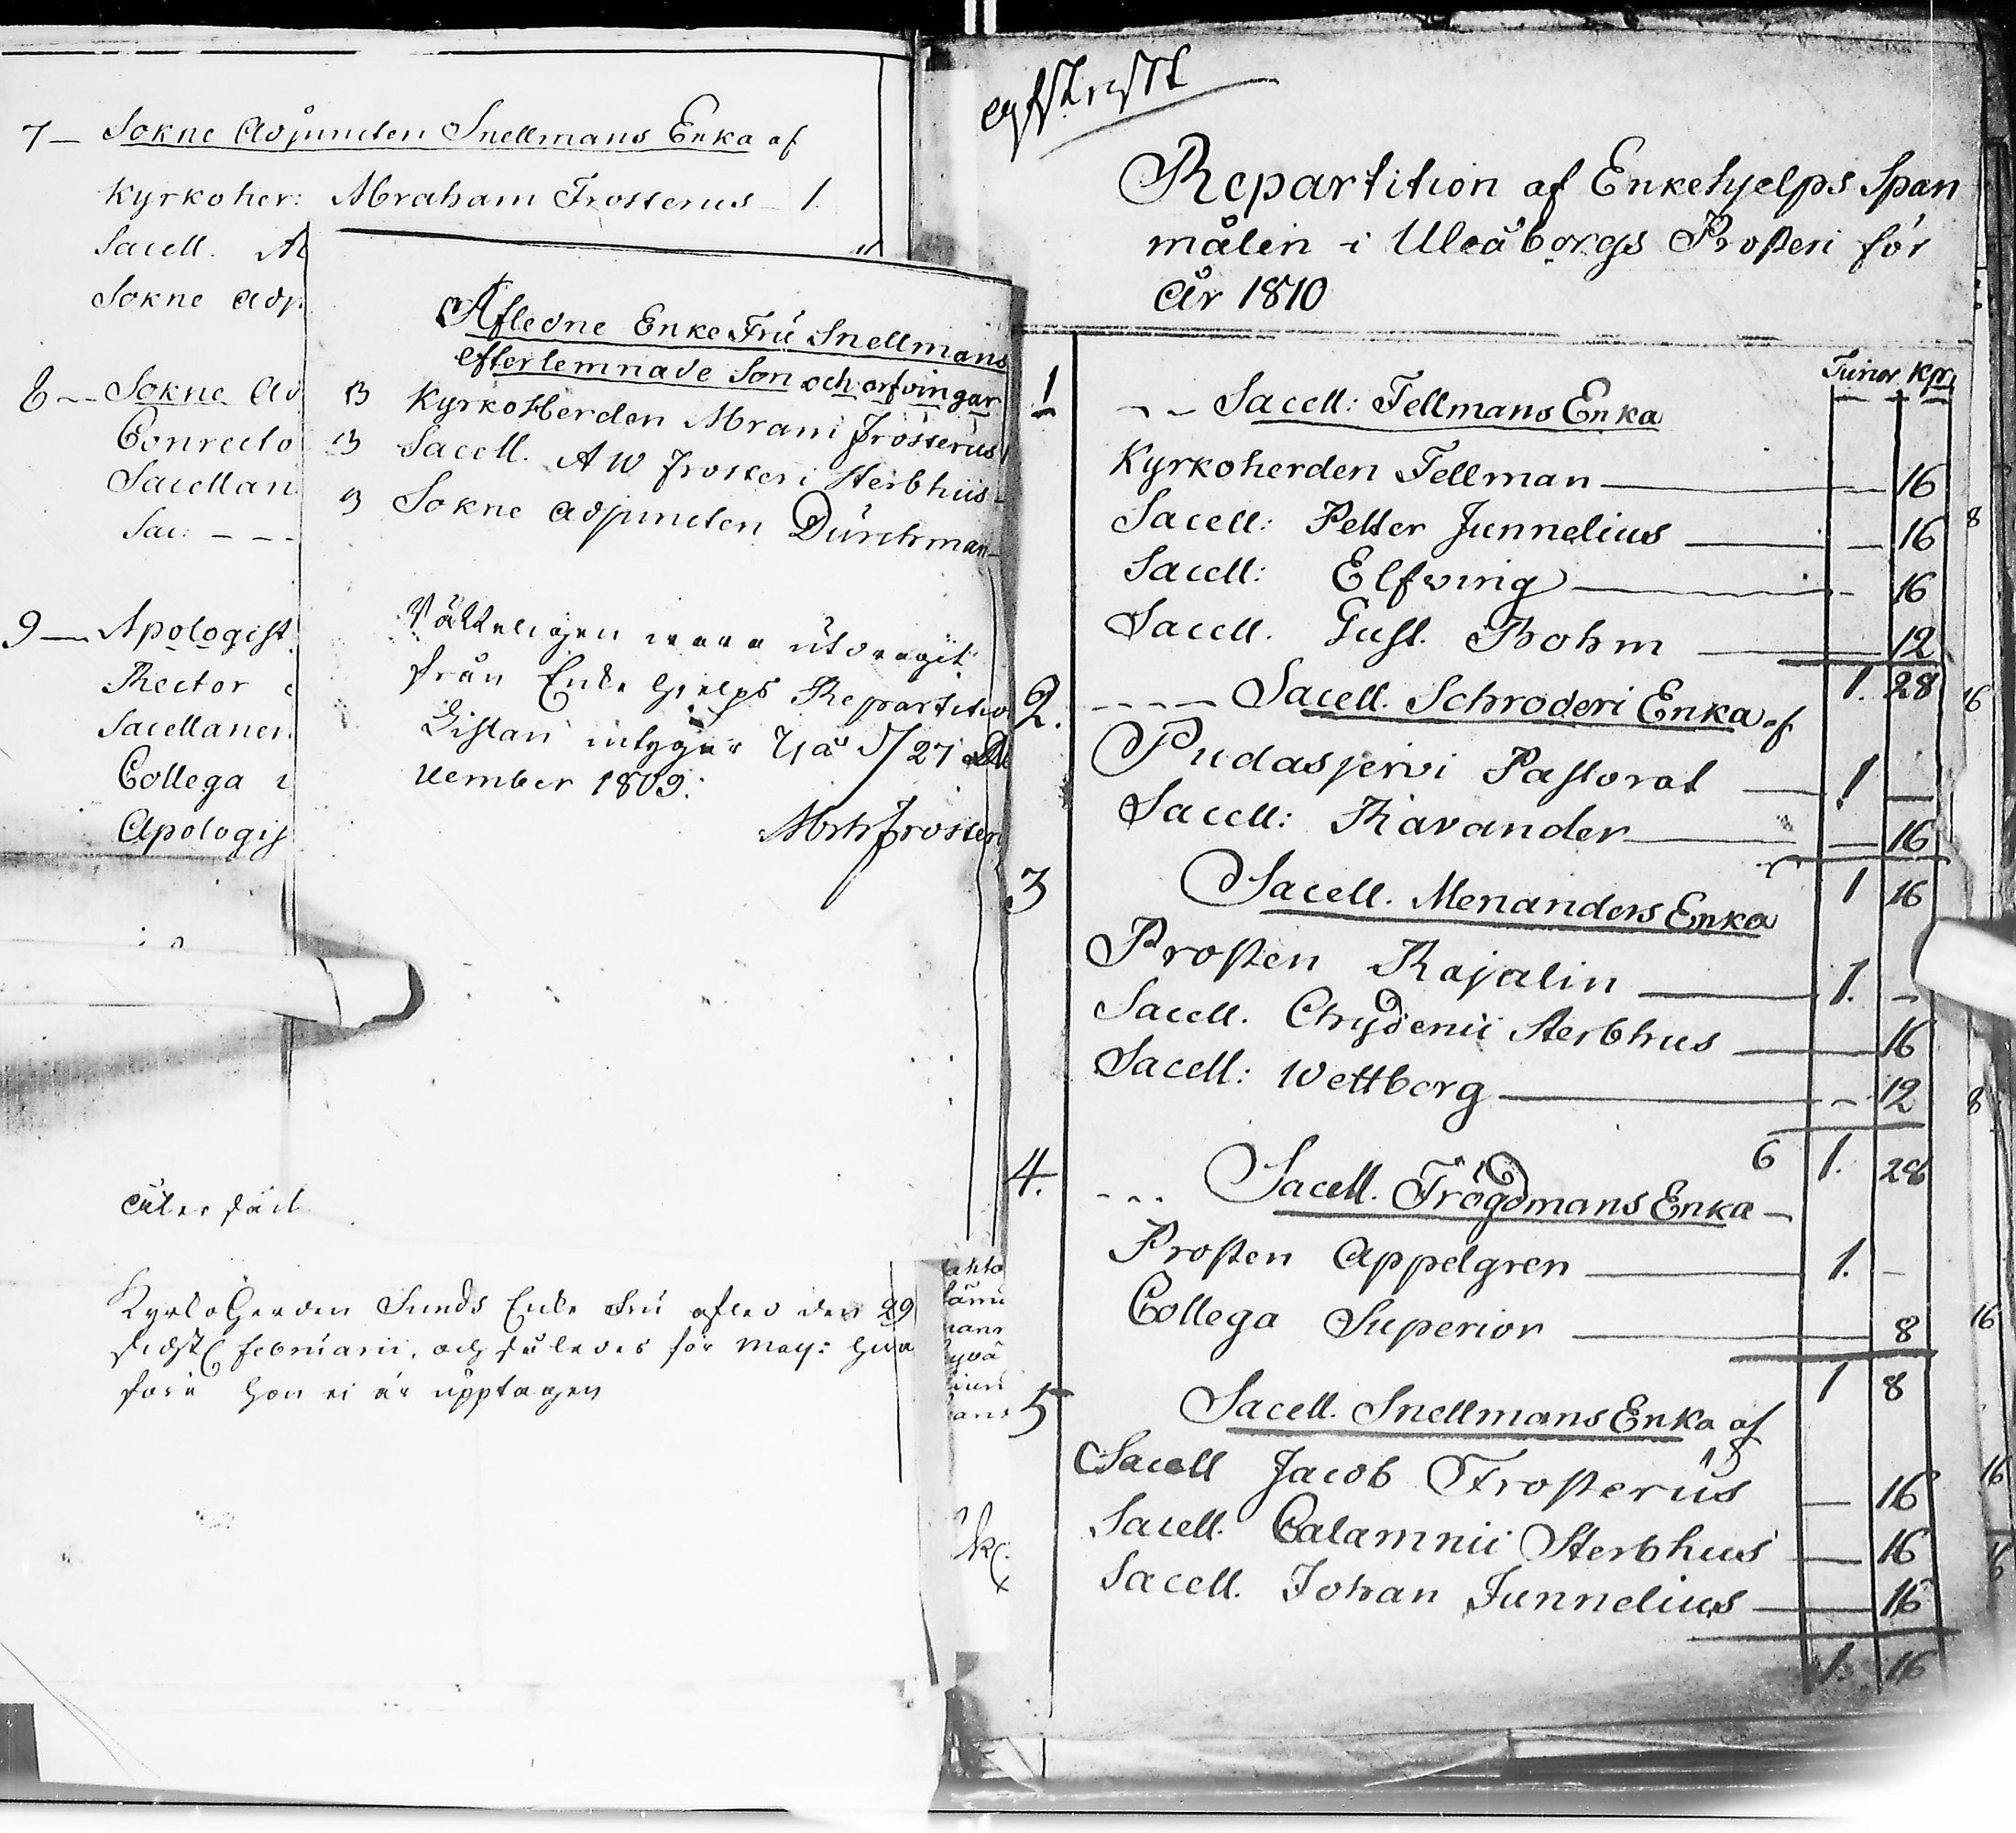 7 — Sokne Adjuncten Snellmans Enka af
Kyrkoher: Abraham Frosterus — 1.
Sacell. A
Sokne Adj.
8 -- Sokne Ad
Conrecto
Sacellan
Sac: - - -
9 — Apologist.
Rector
Sacellaner.
Collega
Apologis
Afledne Enke Fru Snellmans
efterlemnade Son och arfvingar
Kyrkoherden Abram Frosterus
Sacell. AW Frosteri Sterbhus
Sokne adjuncten Durchman
Rätteligen vara utdragit
från Enke hjelps Repartitio
Listan intygar 27
vember 1809:
Abrh Froster
Kyrkoherden Lunds Enke Fru afled den 29
sidstl. februarii, och således för May: hva
före hon ej är upptagen
Repartition af Enkehjelps Span
målen i Uleåborgs Prosteri för
År 1810
Tunor Kpr
1 - - Sacell: Fellmans Enka
Kyrkoherden Fellman — — 16
Sacell: Petter Junnelius — — 16
Sacell: Elfving — - 16
Sacell. Gust. Bohm — 12
1. 28
2. - - - - Sacell. Schroderi Enka af
Pudasjervi Pastorat — 1 —
Sacell: Ravander — — 16
1 16
3 Sacell. Menanders Enka
Prosten Rajalin — 1. -
Sacell. Chydenii Sterbhus — 16
Sacell: Wettberg — - 12
6 1. 28
4. - - - Sacell. Frögdmans Enka —
Prosten Appelgren — 1. -
Collega Superior — 8
1 8
5 Sacell. Snellmans Enka af
Sacell Jacob Frosterus — 16
Sacell. Calamnii Sterbhus — 16
Sacell. Johan Junnelius — 16
1. 16